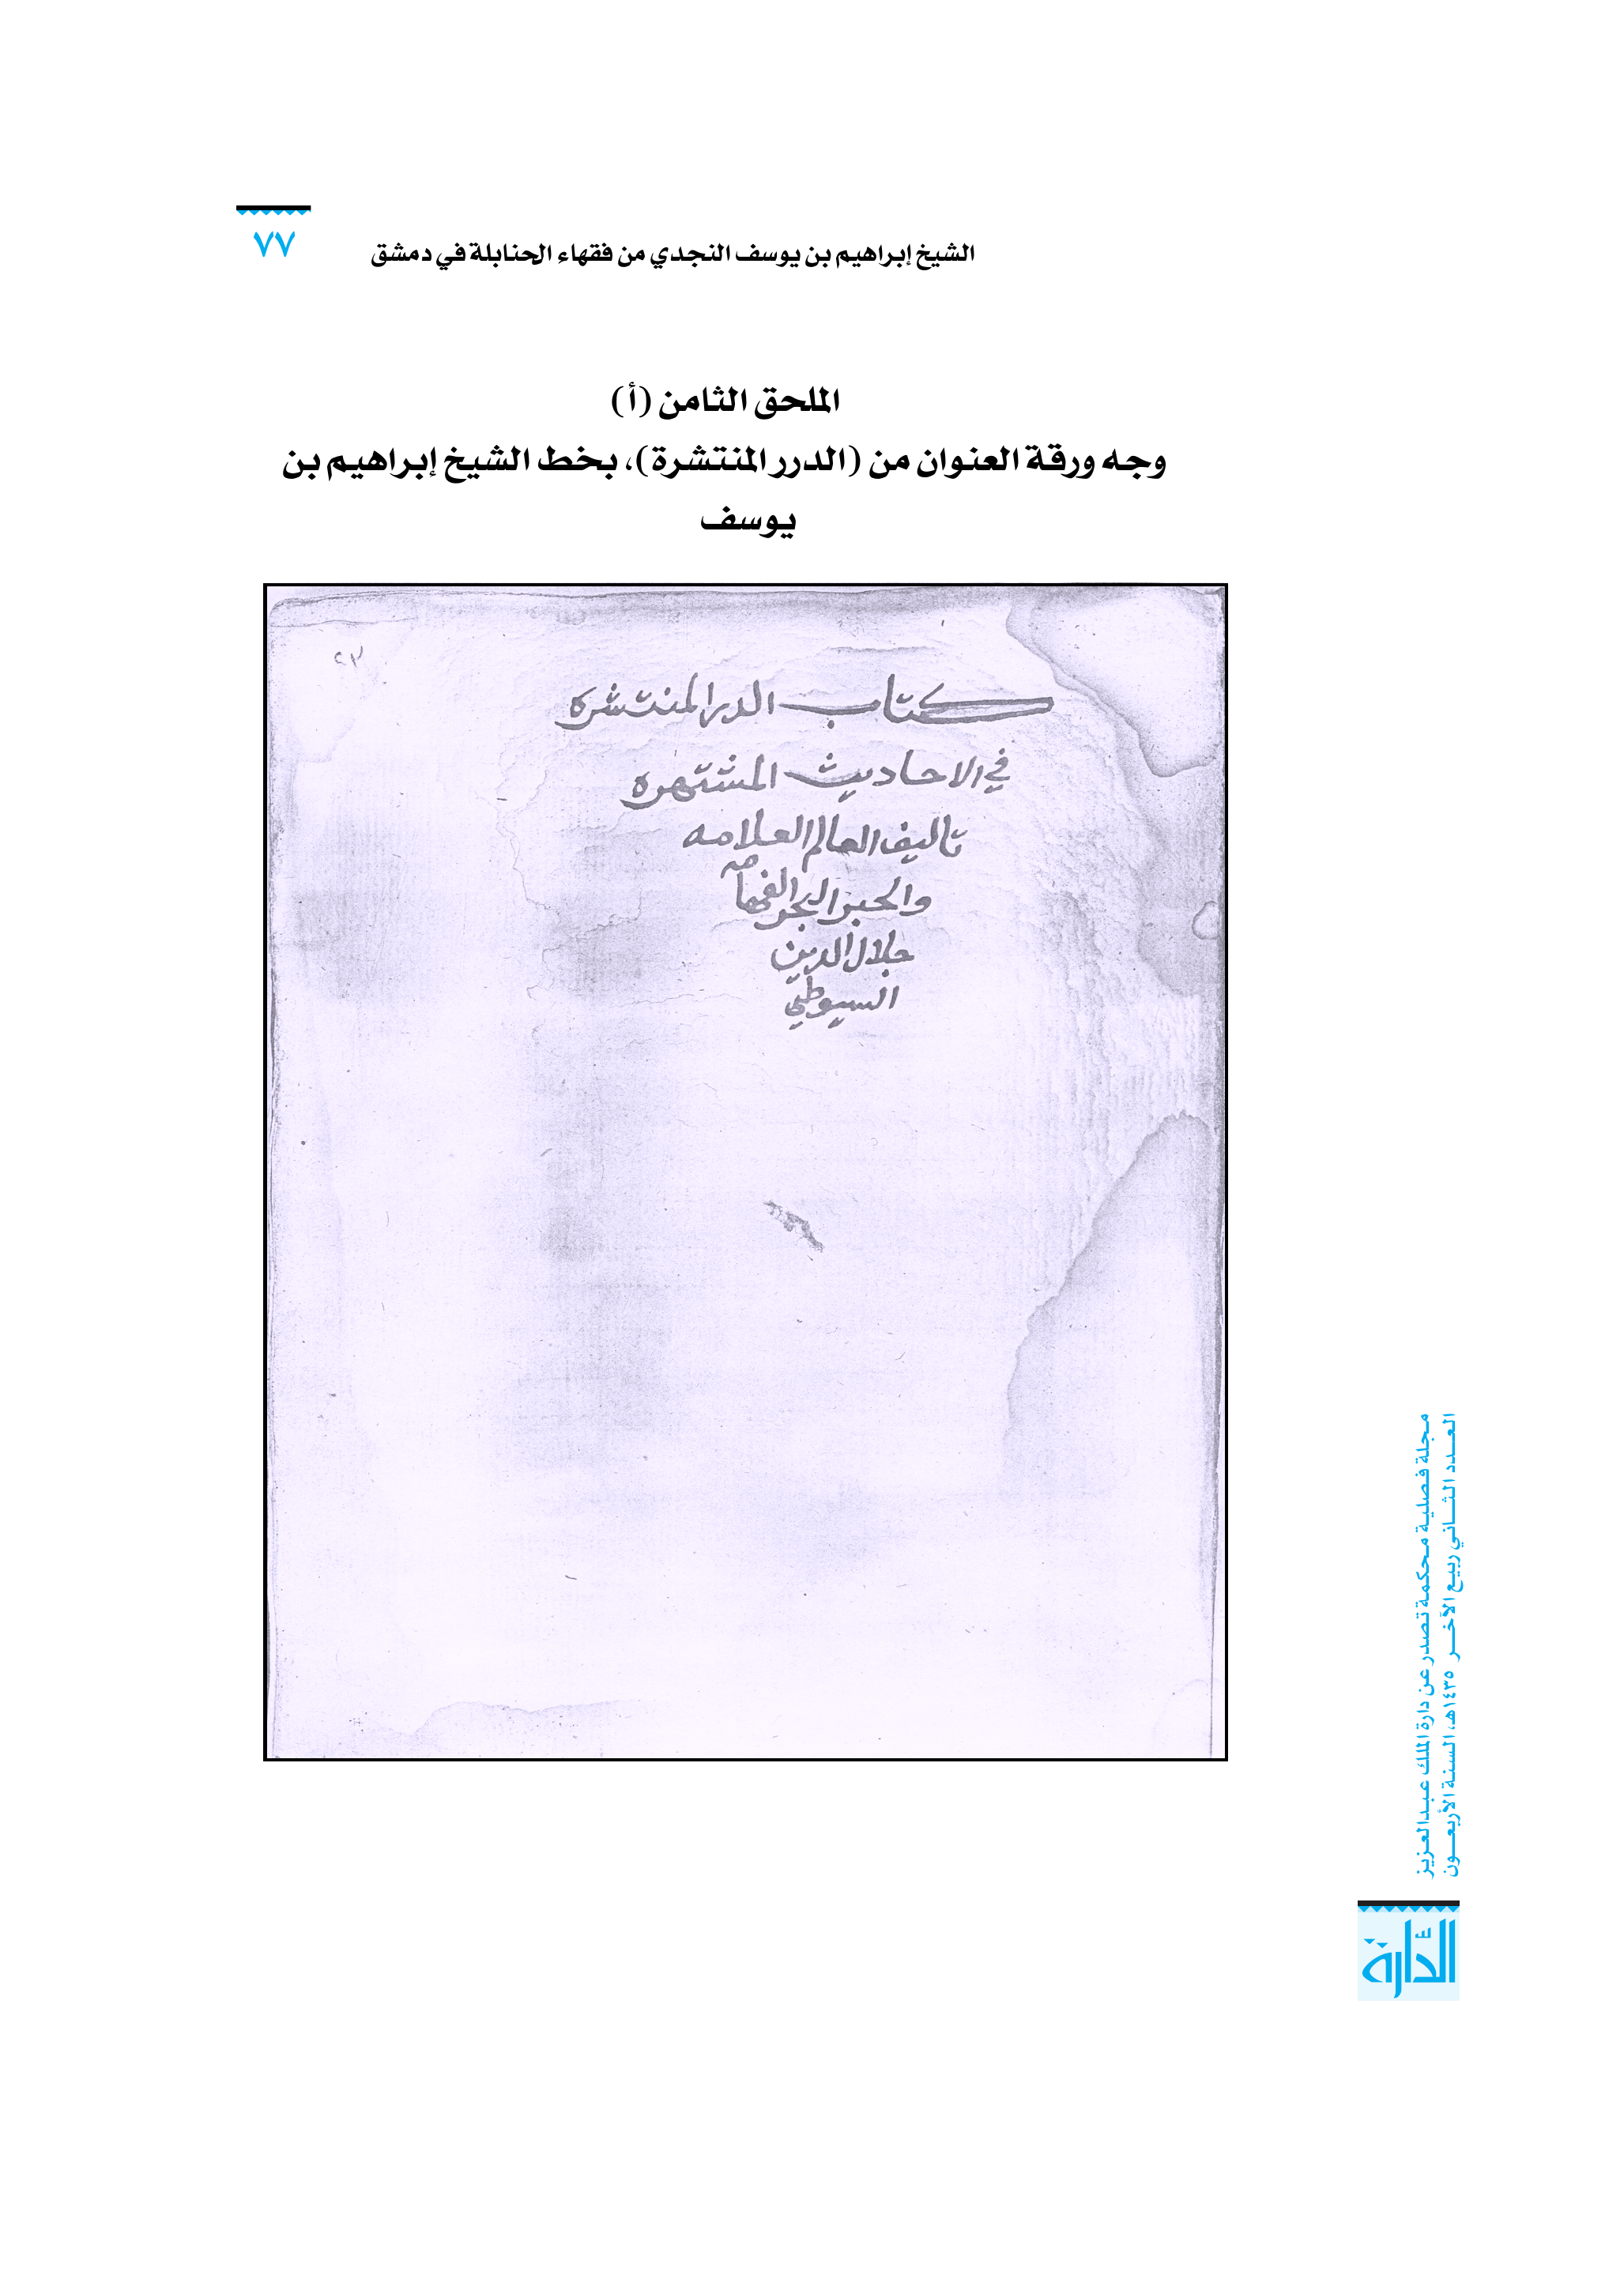 الشيخ إبراهيم بن يوسف النجدي من فقهاء الحنابلة في دمشق
٧٧
الملحق الثامن (أ)
وجه ورقة العنوان من (الدرر المنتشرة)، بخط الشيخ إبراهيم بن
يوسف
كتاب الدر المنتشره
في الاحاديث المشتهره
تاليف العالم العلامه
والحبر البحر الفهامه
جلال الدين
السيوطي
مجلة فصلية محكمة تصدر عن دارة الملك عبدالعزيز
العدد الثاني ربيع الآخر ١٤٣٥هـ، السنة الأربعون
الدارة